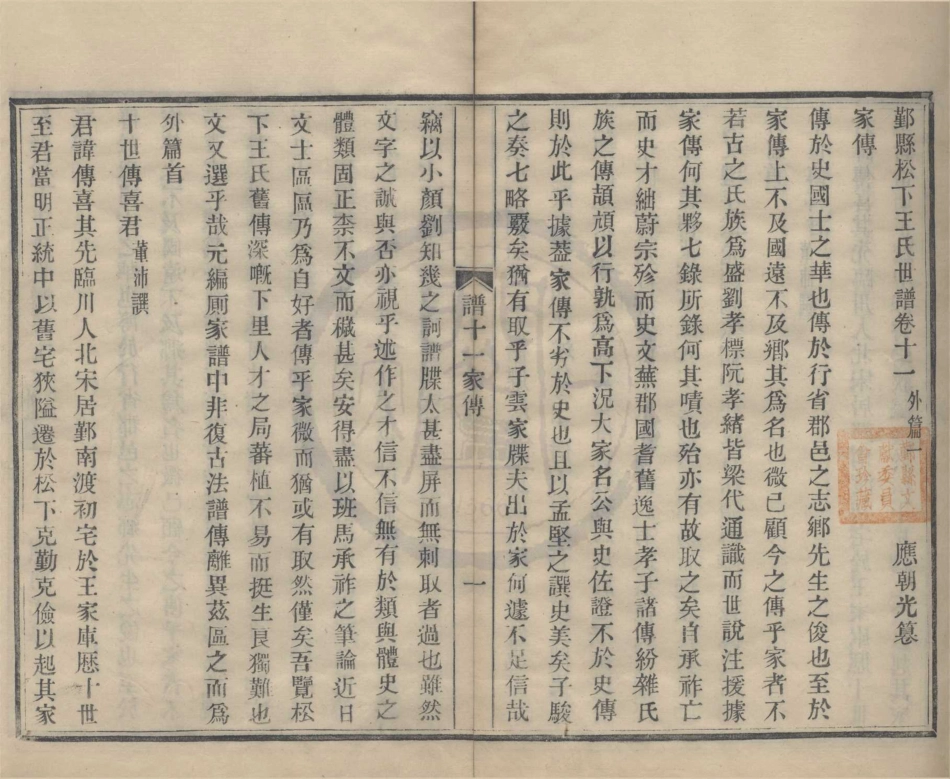 鄞縣松下王氏世譜卷十一 外篇一 應朝光纂
家傳
傳於史國士之華也傳於行省郡邑之志鄉先生之俊也至於
家傳上不及國遠不及鄉其爲名也微已顧今之傳乎家者不
若古之氏族爲盛劉孝標阮孝緒皆梁代通識而世說注援據
家傳何其夥七錄所錄何其嘖也殆亦有故取之矣自承祚亡
而史才絀蔚宗殄而史文蕪郡國耆舊逸士孝子諸傳紛雜氏
族之傳頡頏以行孰爲高下況大家名公與史佐證不於史傳
則於此乎據葢家傳不劣於史也且以孟堅之譔史美矣子駿
之奏七略覈矣猶有取乎子雲家牒夫出於家何遽不足信哉
譜十一家傳 一
竊以小顏劉知幾之訶譜牒太甚盡屏而無刺取者過也雖然
文字之誠與否亦視乎述作之才信不信無有於類與體史之
體類固正柰不文而穢甚矣安得盡以班馬承祚之筆論近日
文士區區乃爲自好者傳乎家微而猶或有取然僅矣吾覽松
下王氏舊傳深嘅下里人才之局蕃植不易而挺生良獨難也
文又選乎哉元編厠家譜中非復古法譜傳離異茲區之而爲
外篇首
十世傳喜君 董沛譔
君諱傳喜其先臨川人北宋居鄞南渡初宅於王家庫厯十世
至君當明正統中以舊宅狹隘遷於松下克勤克儉以起其家